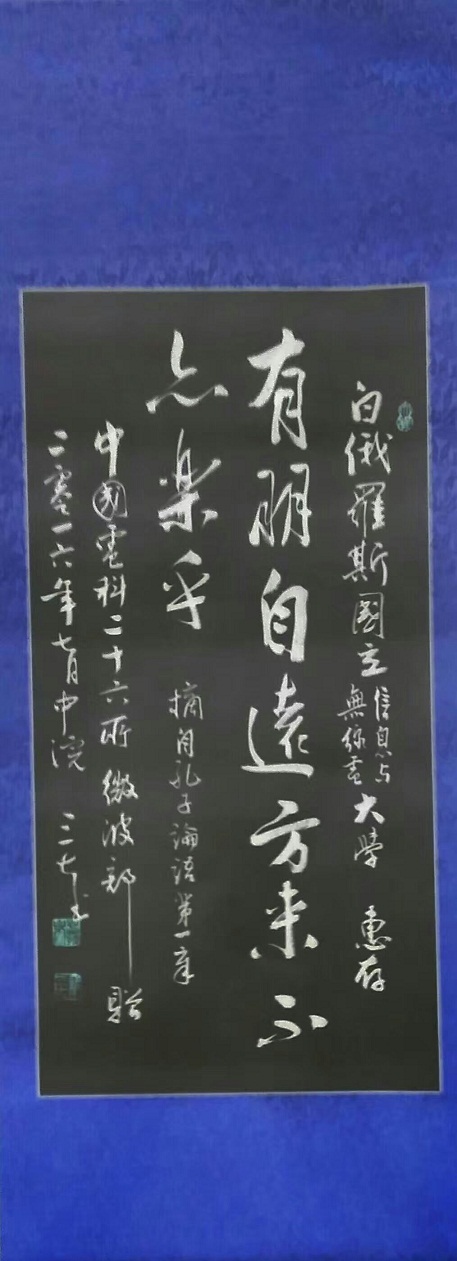 白俄羅斯國立信息与無線電大學 惠存
有朋自遠方来不
亦楽乎 摘自孔子論語第一章
中國電科二十六所微波部 贈
二零一六年七月中浣